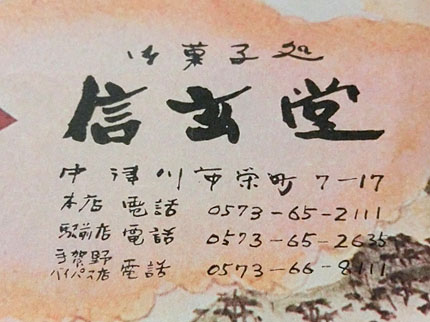 御菓子処
信玄堂
中津川市栄町 7-17
本店 電話 0573-65-2111
駅前店 電話 0573-65-2635
手賀野バイパス店 電話 0573-66-8111